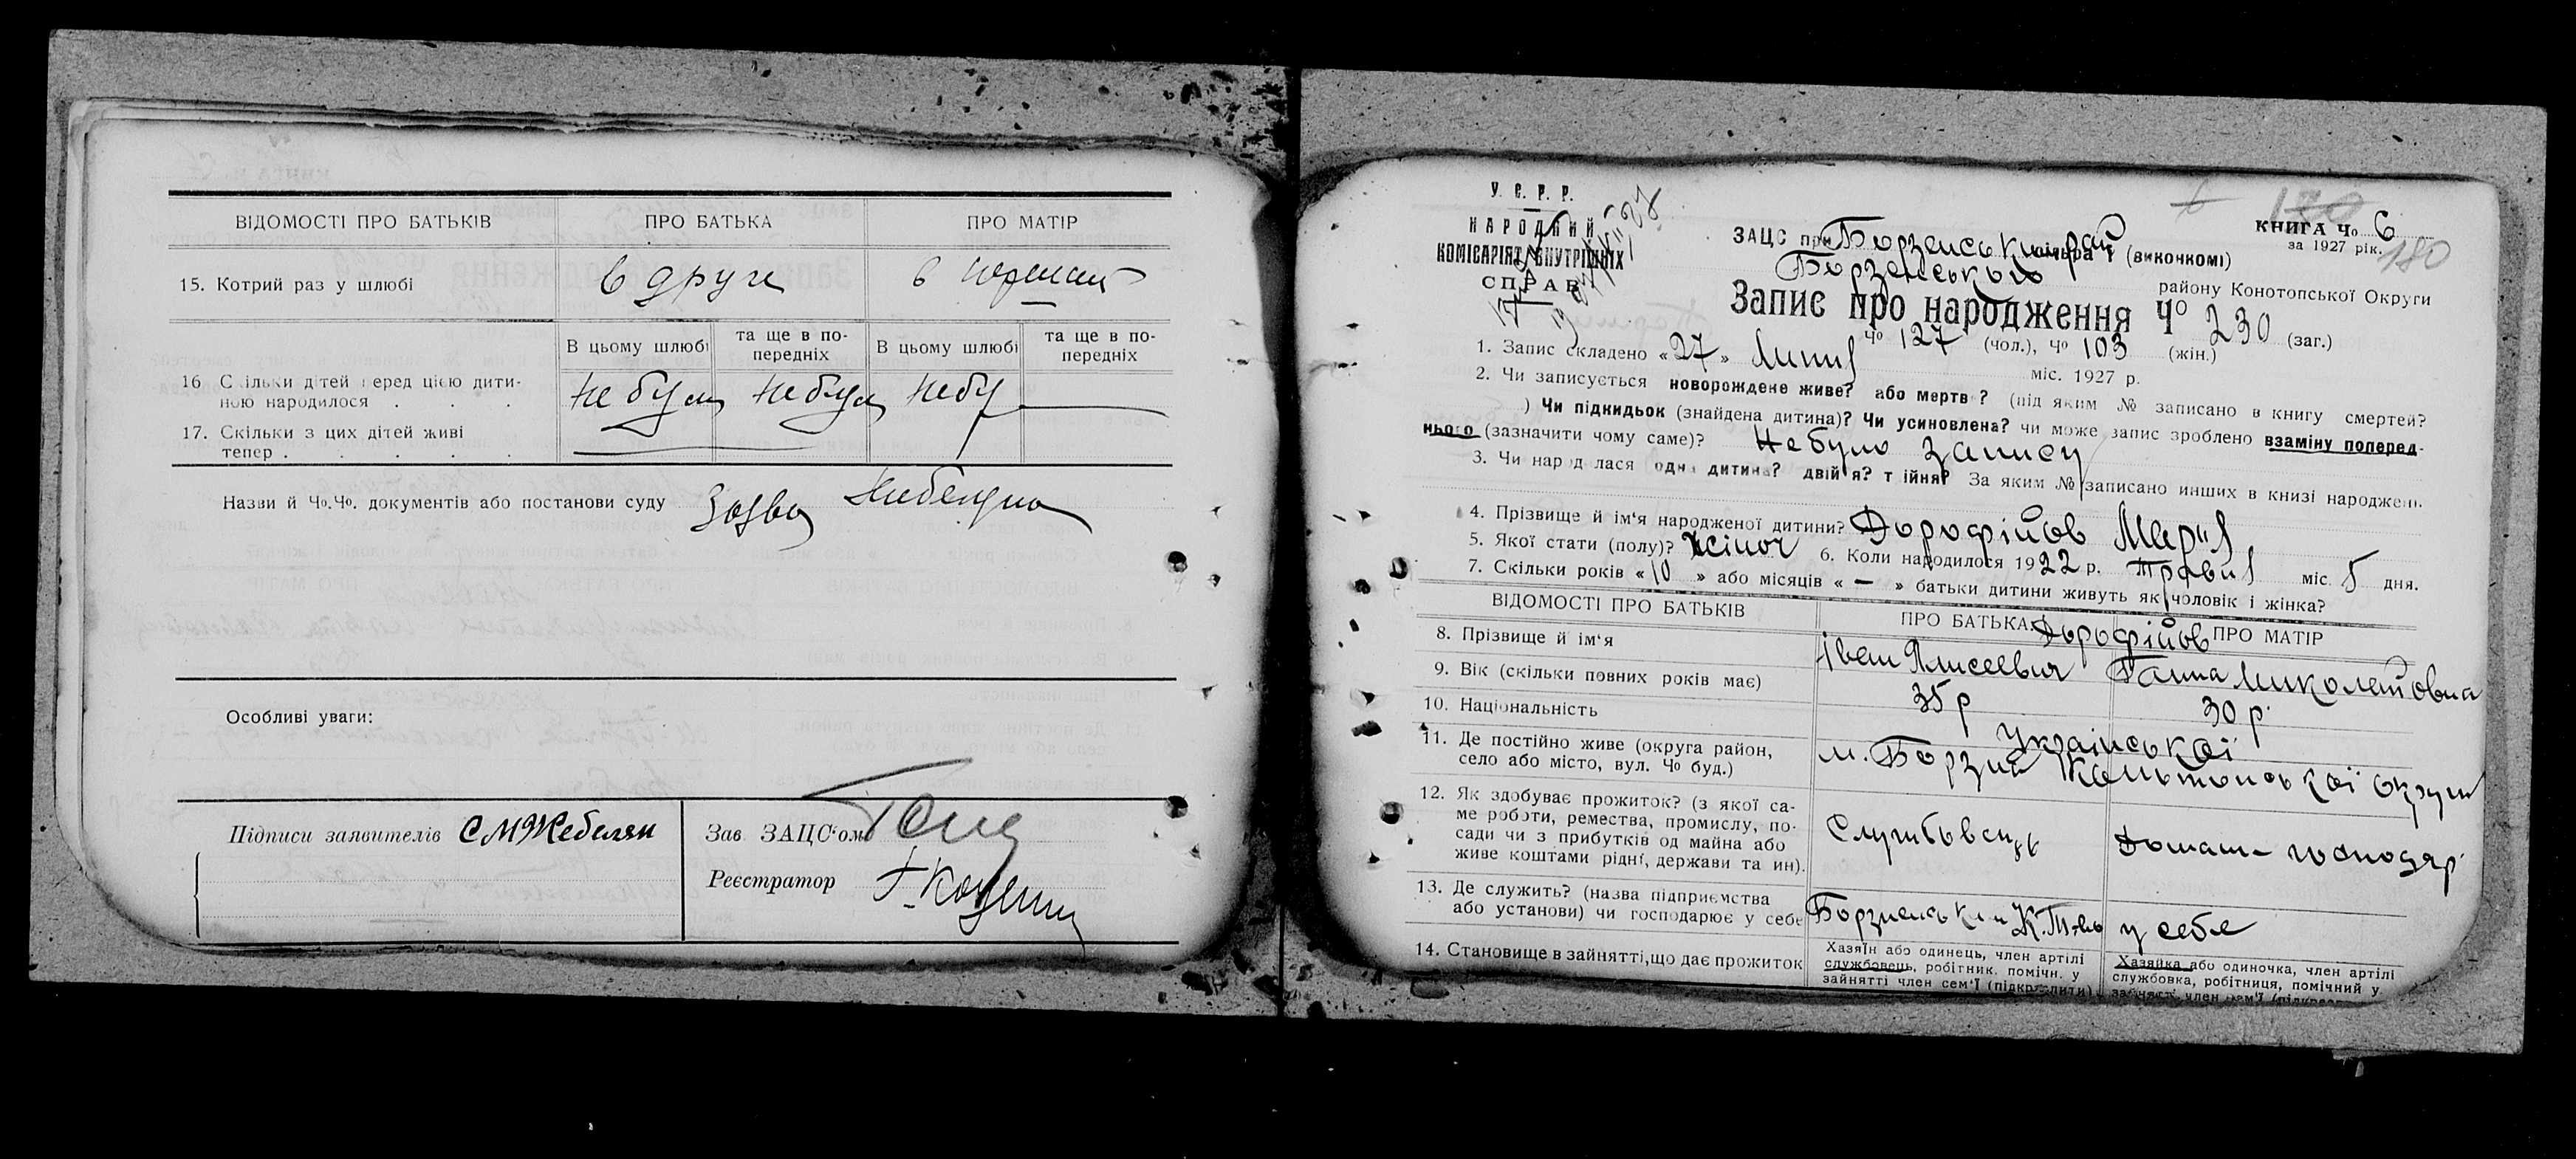 ВІДОМОСТІ ПРО БАТЬКІВ ПРО БАТЬКА ПРО МАТІР
15. Котрий раз у шлюбі в друге в
В цьому шлюбі та ще в по-передніх В цьому шлюбі та ще в по-передніх
16 Скільки дітей перед цією дити-
ною народилося . . . не були не були небу
17. Скільки з цих дітей живі
тепер . . . . .
Назви й Чо.Чо. документів або постанови суду Заява
Особливі уваги:
Підписи заявителів
Зав. ЗАЦС'ом
Реєстратор
У. С. Р. Р.
НАРОДНИЙ
КОМІСАРІЯТ ВНУТРІШНІХ
СПРАВ
КНИГА Чо 6
за 1927 рік.
180
ЗАЦС при Борзенськім рай (виконкомі)
Борзенського району Конотопської Округи
Запис про народження Чо 230 (заг.)
Чо 127 (чол.), Чо 103 (жін.)
1. Запис складено «27» Липня міс. 1927 р.
2. Чи записується новорождене живе? або мертве? (під яким № записано в книгу смертей?
) Чи підкидьок (знайдена дитина)? Чи усиновлена? чи може запис зроблено взаміну поперед-
нього (зазначити чому саме)? Не було запису
3. Чи народилася одна дитина? двійня? трійня? За яким № записано инших в книзі народжень
4. Прізвище й ім'я народженої дитини? Дорофійов Марія
5. Якої стати (полу)? жіноч 6. Коли народилося 1922 р. травня міс. 5 дня.
7. Скільки років «10» або місяців «—» батьки дитини живуть як чоловік і жінка?
ВІДОМОСТІ ПРО БАТЬКІВ ПРО БАТЬКА ПРО МАТІР
8. Прізвище й ім'я Дорофійов
Іван Ялисеевич Ганна Миколайовна
9. Вік (скільки повних років має) 35 р 30 р.
10. Національність української
11. Де постійно живе (округа район,
село або місто, вул. Чо буд.) м. Борзна Конотопської округи
12. Як здобуває прожиток? (з якої са-
ме роботи, ремества, промислу, по-
сади чи з прибутків од майна або
живе коштами рідні, держави та ин). Службовець Домаш- господар
13. Де служить? (назва підприємства
або установи) чи господарює у себе у себе
14. Становище в зайнятті, що дає прожиток
Хазяїн або одинець, член артілі
службовець, робітник. помічн. у
зайнятті член сем'ї (підкреслити)
Хазяйка або одиночка, член артілі
службовка, робітниця, помічний у
зайнятті член сем'ї